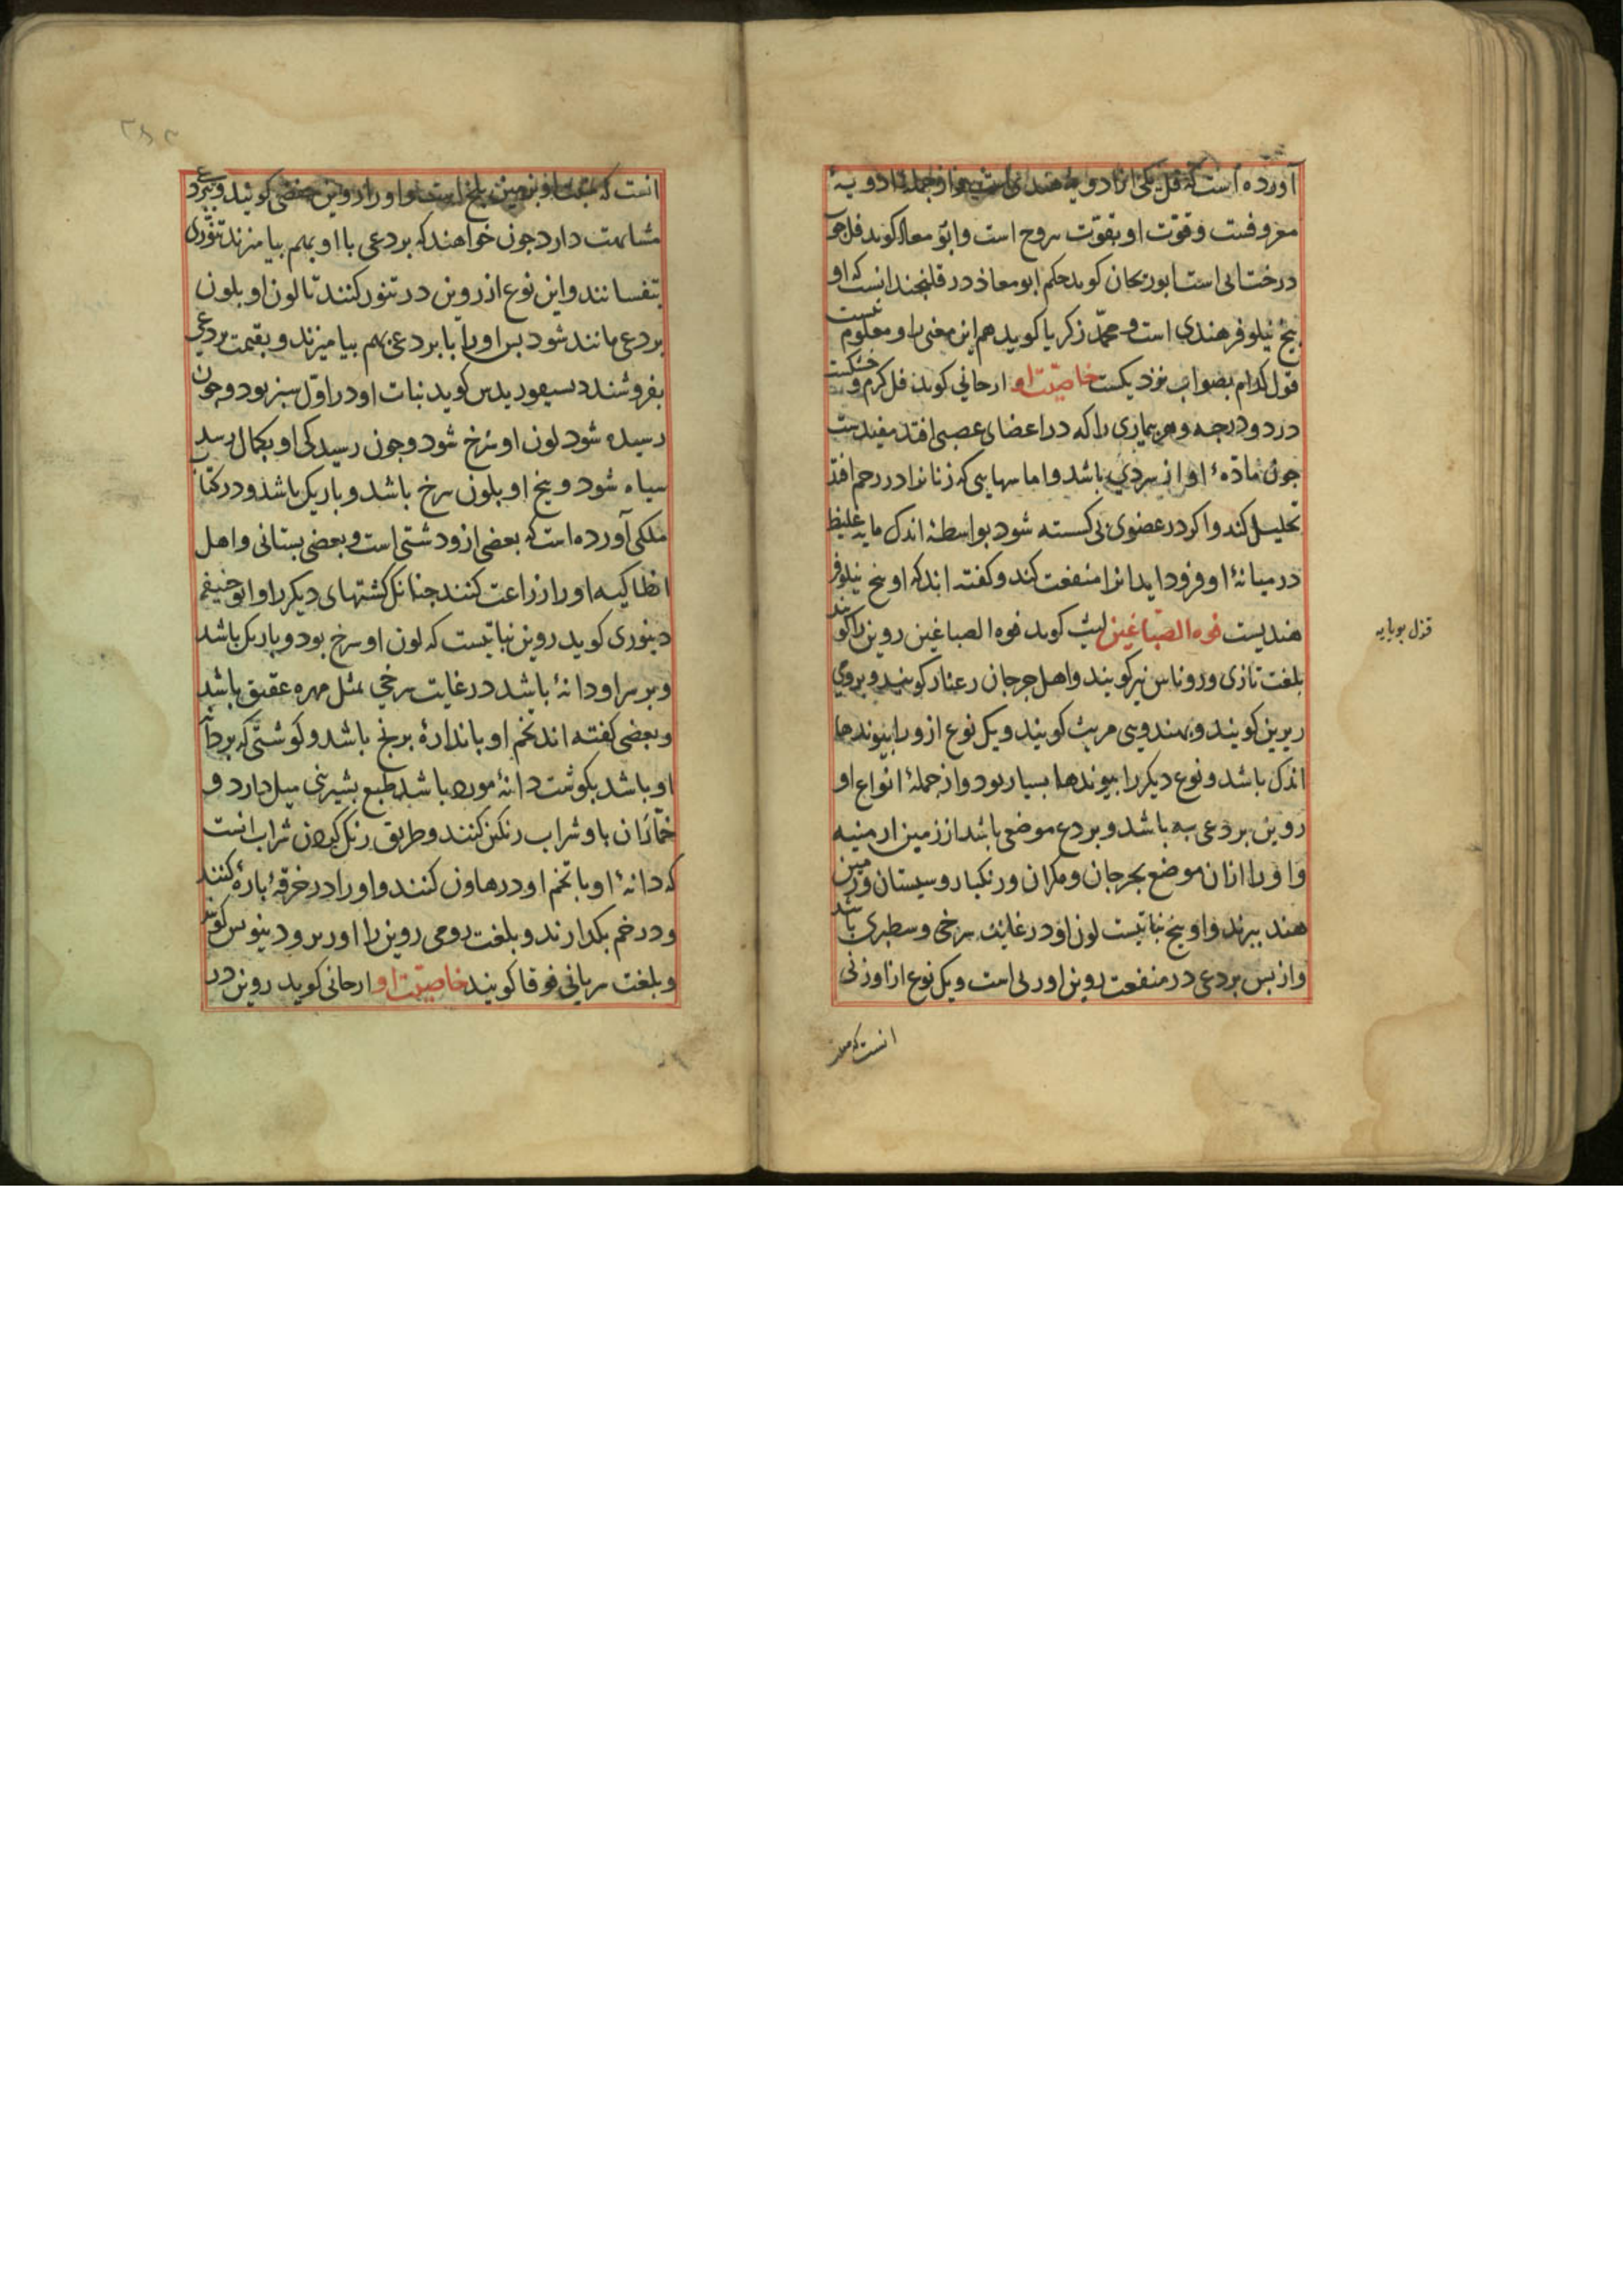 آورده است که فل یکی از ادویه هندی است و از جملۀ ادویۀ
معروفست و قوّت او بقوّت سروح است و ابو معاذ کوید فل جو
درختانی است ابوریحان کوید حکم ابو معاذ در قلنجند انست که او
بیخ نیلوفر هندی است و محمّد زکریا کوید هم این معنی را و معلوم نیست
قول کدام بصواب نزدیکست خاصیّت او ارجانی کوید فل کرم و خشکست
در دو درجه و هر بیماری را که در اعضای عصبی افتد مفیدست
جون مادّهٔ او از سردی باشد و اماسهایی که زنانرا در رحم افتد
تحلیل کند و اکر در عضوی پی کسسته شود بواسطۀ اندک مایه غلیظ
در میانۀ او فرود اید انرا منفعت کند و کفته اند که او بیخ نیلوفر
هندیست فوه الصبّاغین لیث کوید فوه الصباغین روین را کویند
بلغت تازی و روناس نیز کویند و اهل جرجان رعنار کویند و برومی
ریرین کویند و بهندویی مریث کویند و یک نوع ازو را پیوندها
اندک باشد و نوع دیکر را پیوندها بسیار بود و از جملۀ انواع او
روین بردعی به باشد و بردع موضعی باشد از زمین ارمنیه
و او را ازان موضع بجرجان و مکران و رنکبار و سیستان و زمین
هند برند و او بیخ نباتیست لون او در غایت سرخی و سطبری باشد
و از پس بردعی در منفعت روین اورلی است و یک نوع از او زنی
انست که
قزل بویایه
انست که نبات او بزمین بلخ است و او را روین حفصی کویند و ببردعی
مشابهت دارد جون خواهند که بردعی با او بهم بیامیزند تنوری
بتفسانند و این نوع از روین در تنور کنند تا لون او بلون
بردعی مانند شود پس او را با بردعی بهم بیامیزند و بقیمت بردعی
بفروشند دیسقوریدس کوید نبات او در اوّل سبز بود و جون
رسیده شود لون او سرخ شود و جون رسیدکی او بکمال رسد
سیاه شود و بیخ او بلون سرخ باشد و باریک باشد و در کتاب
ملکی آورده است که بعضی ازو دشتی است و بعضی بستانی و اهل
انطاکیه او را زراعت کنند جنانک کشتهای دیکر را و ابو حنیفه
دینوری کوید روین نباتیست که لون او سرخ بود و باریک باشد
و بر سر او دانۀ باشد در غایت سرخی بمثل مهره عقیق باشد
و بعضی کفته اند تخم او باندازۀ برنج باشد و کوشتی که بر دانۀ
او باشد بکوشت دانۀ مورد باشد طبع بشیرینی میل دارد و
خمّاران باو شراب رنکین کنند و طریق رنک کردن شراب انست
که دانۀ او با تخم او در هاون کنند و او را در خرقۀ پارۀ کنند
و در خم بکذارند و بلغت رومی روین را اوربرودینوس کویند
و بلغت سریانی فوقا کویند خاصیّت او ارجانی کوید روین در